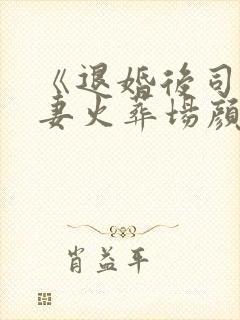 《退婚後司
妻火葬場顔
肖益平